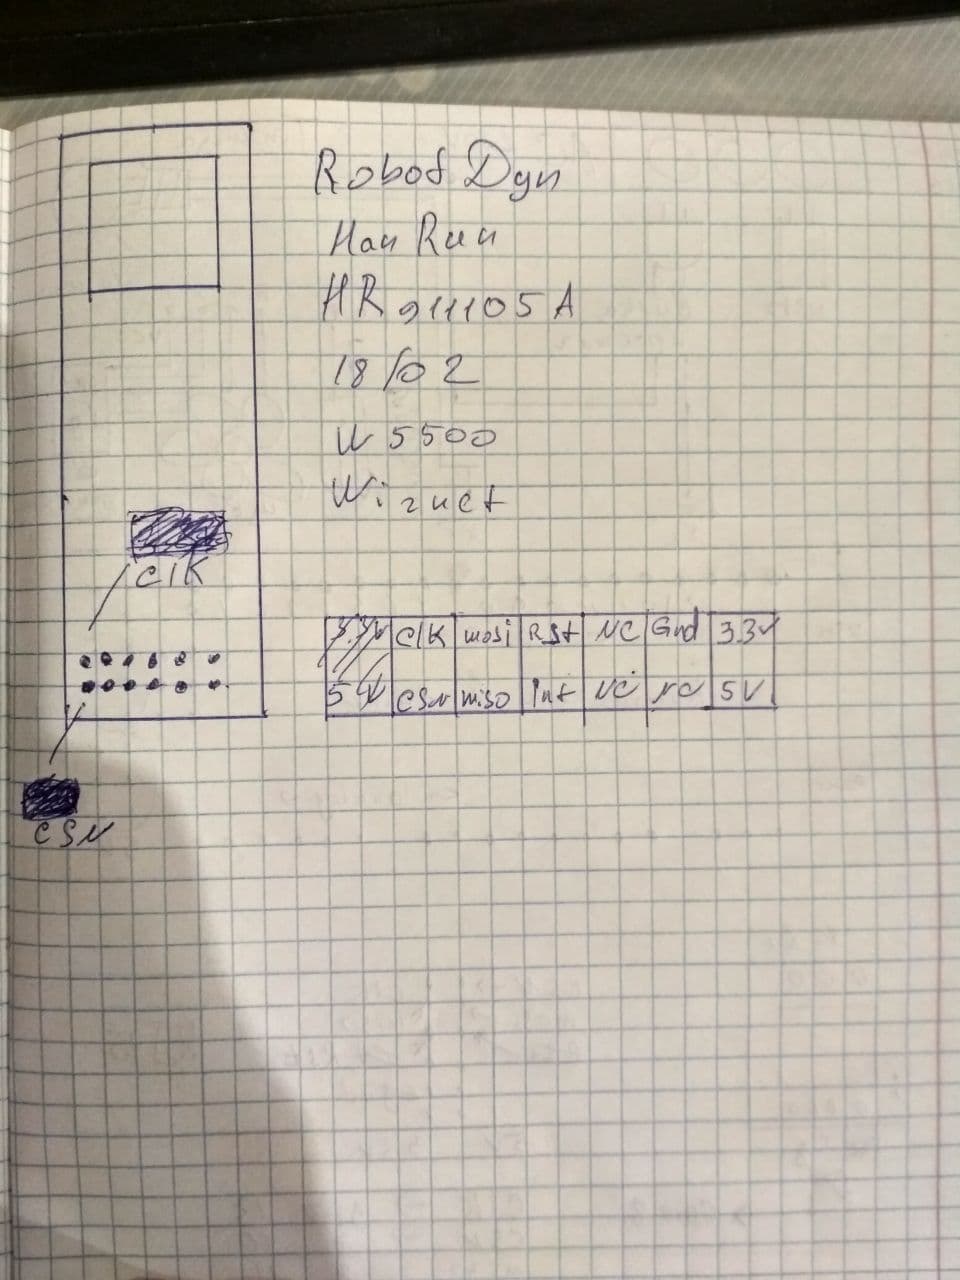 Robot Dyn
Han Run
HR 911105 A
18/02
W 5500
Wiznet
ClK
ClK mosi RSt NC Gnd 3.3V
5 V CSN miso Int NC NC 5V
CSN